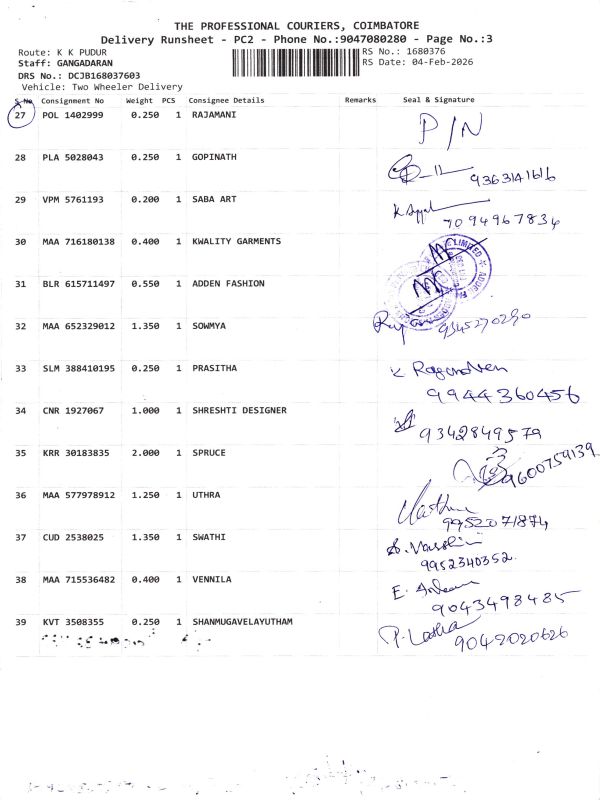 THE PROFESSIONAL COURIERS, COIMBATORE
Delivery Runsheet - PC2 - Phone No.:9047080280 - Page No.:3
Route: K K PUDUR
RS No.: 1680376
Staff: GANGADARAN
RS Date: 04-Feb-2026
DRS No.: DCJB168037603
Vehicle: Two Wheeler Delivery
S No Consignment No Weight PCS Consignee Details Remarks Seal & Signature
27 POL 1402999 0.250 1 RAJAMANI P/N
28 PLA 5028043 0.250 1 GOPINATH
9363141616
29 VPM 5761193 0.200 1 SABA ART
7094967834
30 MAA 716180138 0.400 1 KWALITY GARMENTS
31 BLR 615711497 0.550 1 ADDEN FASHION
32 MAA 652329012 1.350 1 SOWMYA 9345270290
33 SLM 388410195 0.250 1 PRASITHA
9944360456
34 CNR 1927067 1.000 1 SHRESHTI DESIGNER
9342849579
35 KRR 30183835 2.000 1 SPRUCE 9600759139
36 MAA 577978912 1.250 1 UTHRA
9952071874
37 CUD 2538025 1.350 1 SWATHI
9952340352
38 MAA 715536482 0.400 1 VENNILA
9043498485
39 KVT 3508355 0.250 1 SHANMUGAVELAYUTHAM P. Latha
9042020626